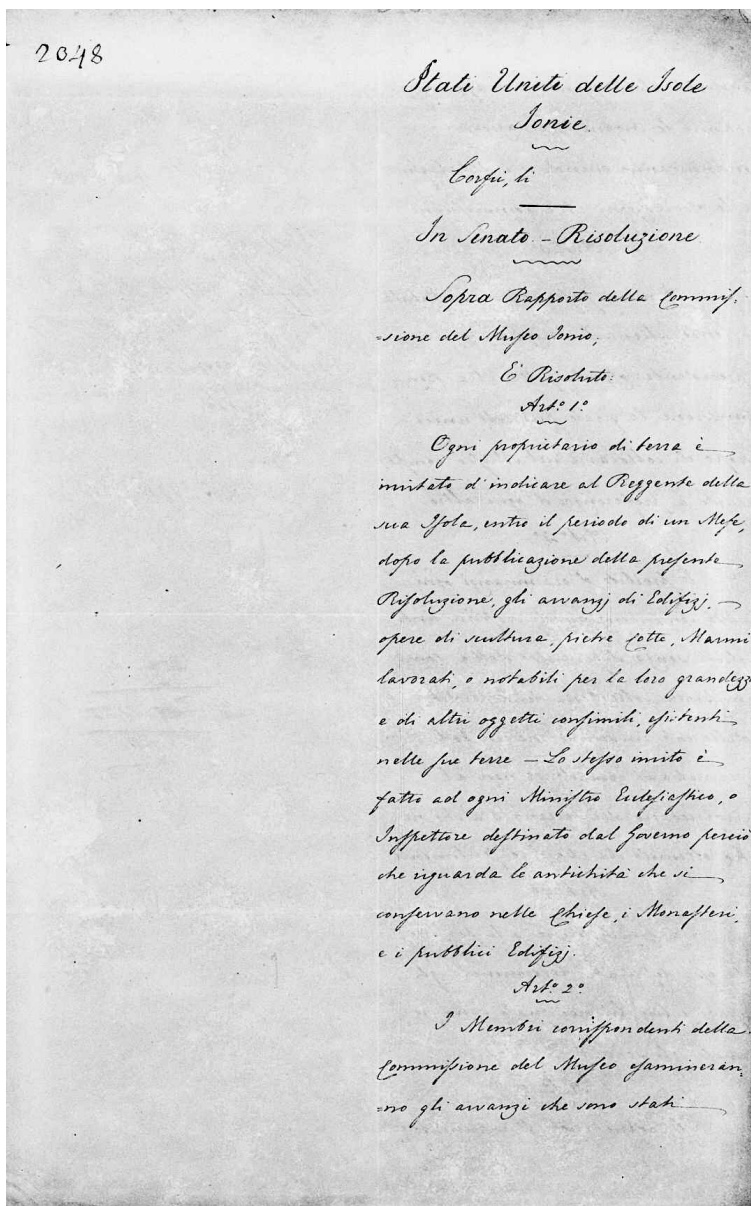 2348
Stati Uniti delle Isole
Jonie.
Corfù, li
In Senato. – Risoluzione
Sopra Rapporto della Commis:
=sione del Museo Jonio,
E' Risoluto:
Art.º 1.º
Ogni proprietario di terra è
invitato d'indicare al Reggente della
sua Isola, entro il periodo di un Mese,
dopo la pubblicazione della presente
Risoluzione, gli avvanzj di Edifizj, –
opere di scultura, pietre cotte, Marmi
lavorati, o notabili per la loro grandezza
e di altri oggetti consimili, esistenti
nelle sue terre – Lo stesso invito è
fatto ad ogni Ministro Eclesiastico, o
Inspettore destinato dal Governo perciò
che riguarda le antichità che si
conservano nelle Chiese, i Monasteri,
e i pubblici Edifizj.
Art.º 2.º
I Membri corrispondenti della
Commissione del Museo esamineran:
=no gli avvanzi che sono stati